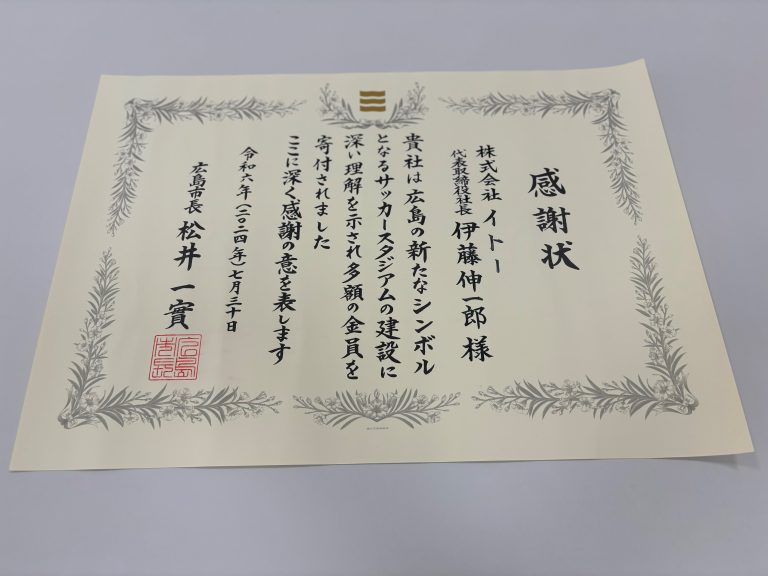 感謝状
株式会社 イトー
代表取締役社長 伊藤 伸一郎 様
貴社は広島の新たなシンボル
となるサッカースタジアムの建設に
深い理解を示され多額の金員を
寄付されました
ここに深く感謝の意を表します
令和六年(二〇二四年)七月三十日
広島市長 松井 一實
広島
市長